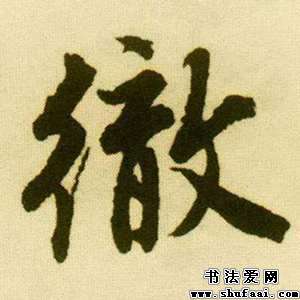 徹
书法爱网
www.shufaai.com